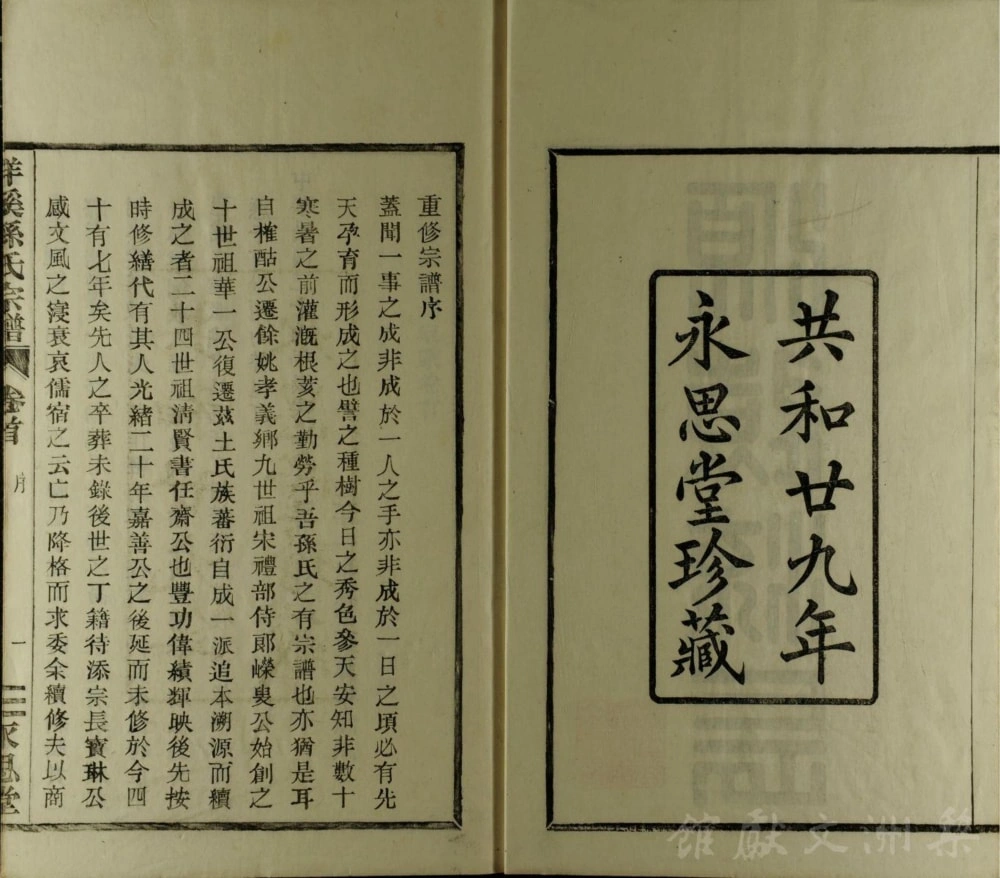 共和廿九年
永思堂珍藏
重修宗譜序
蓋聞一事之成非成於一人之手亦非成於一日之頃必有先
天孕育而形成之也譬之種樹今日之秀色參天安知非數十
寒暑之前灌漑根荄之勤勞乎吾孫氏之有宗譜也亦猶是耳
自榷酤公遷餘姚孝義鄉九世祖宋禮部侍郎嶸叟公始創之
十世祖華一公復遷茲土氏族蕃衍自成一派追本溯源而續
成之者二十四世祖清賢書任齋公也豐功偉績輝映後先按
時修繕代有其人光緒二十年嘉善公之後延而未修於今四
十有七年矣先人之卒葬未錄後世之丁籍待添宗長寶琳公
感文風之寖衰哀儒宿之云亡乃降格而求委余續修夫以商
溪孫氏宗譜 卷首 一 堂
梨洲文獻館